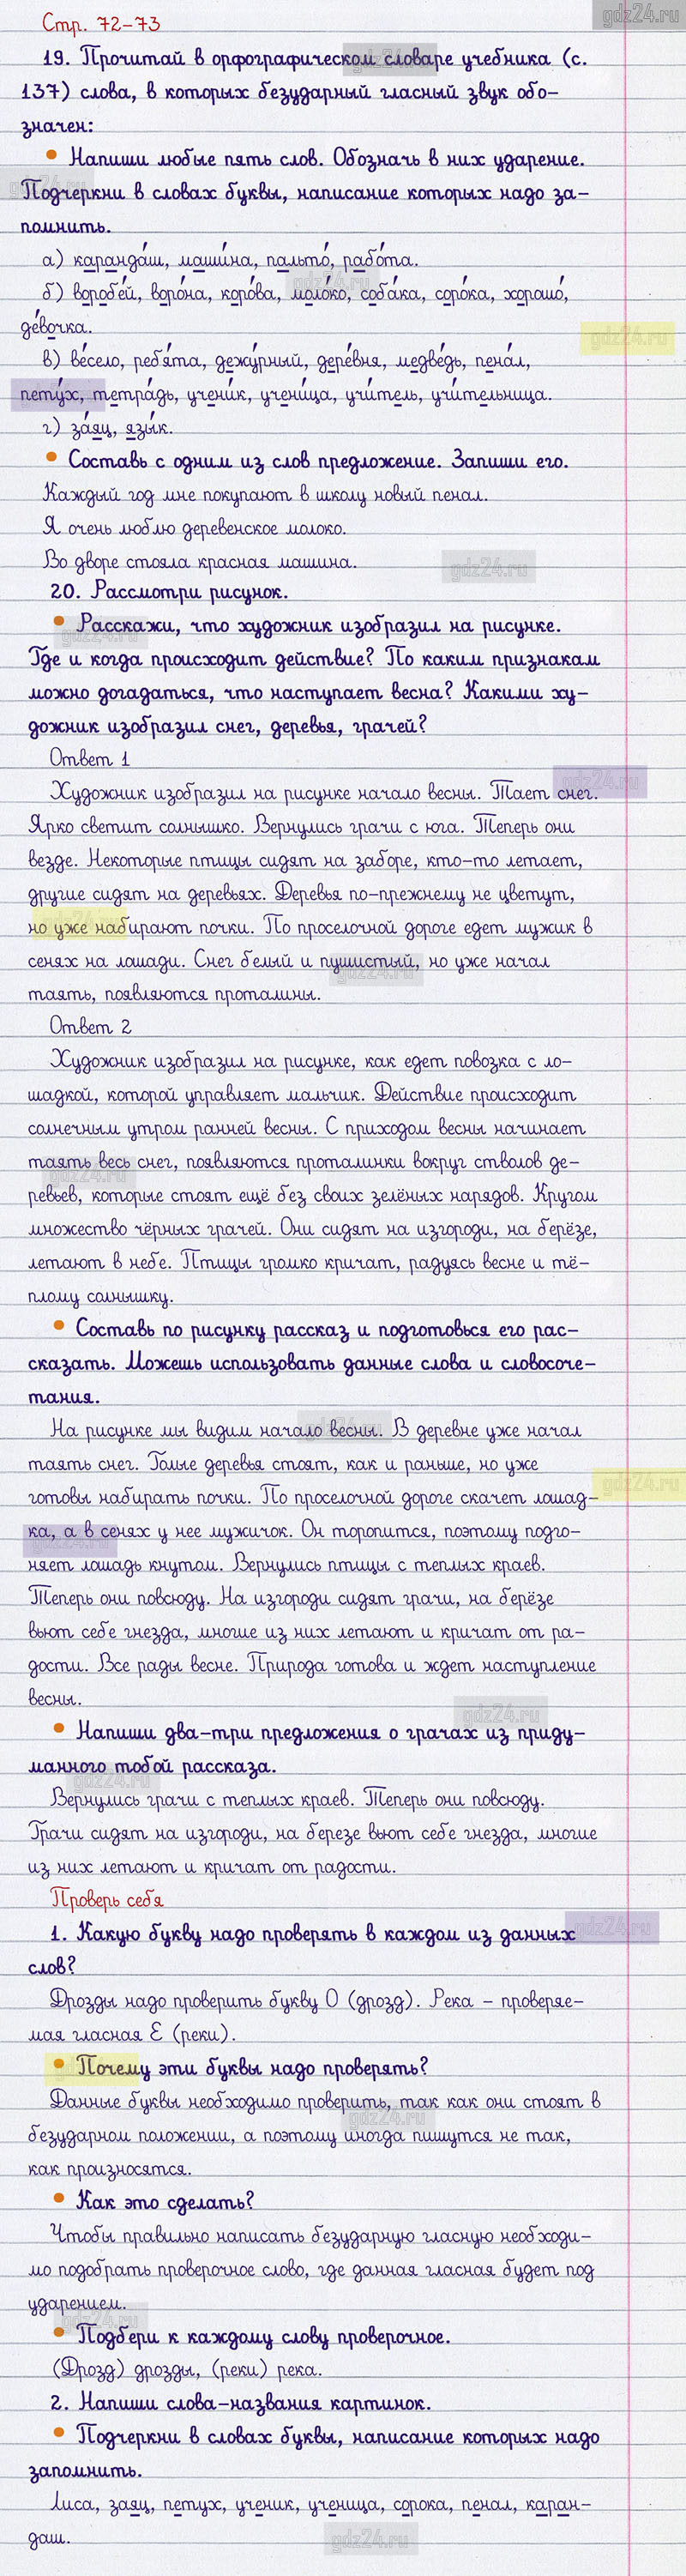 gdz24.ru
Стр. 72-73
19. Прочитай в орфографическом словаре учебника (с.
137) слова, в которых безударный гласный звук обо-
значен:
• Напиши любые пять слов. Обозначь в них ударение.
Подчеркни в словах буквы, написание которых надо за-
помнить.
а) каранда́ш, маши́на, пальто́, рабо́та.
б) воробе́й, воро́на, коро́ва, молоко́, соба́ка, соро́ка, хорошо́,
де́вочка.
в) ве́село, ребя́та, дежу́рный, дере́вня, медве́дь, пена́л,
пету́х, тетра́дь, учени́к, учени́ца, учи́тель, учи́тельница.
г) за́яц, язы́к.
• Составь с одним из слов предложение. Запиши его.
Каждый год мне покупают в школу новый пенал.
Я очень люблю деревенское молоко.
Во дворе стояла красная машина.
20. Рассмотри рисунок.
• Расскажи, что художник изобразил на рисунке.
Где и когда происходит действие? По каким признакам
можно догадаться, что наступает весна? Какими ху-
дожник изобразил снег, деревья, грачей?
Ответ 1
Художник изобразил на рисунке начало весны. Тает снег.
Ярко светит солнышко. Вернулись грачи с юга. Теперь они
везде. Некоторые птицы сидят на заборе, кто-то летает,
другие сидят на деревьях. Деревья по-прежнему не цветут,
но уже набирают почки. По проселочной дороге едет мужик в
сенях на лошади. Снег белый и пушистый, но уже начал
таять, появляются проталины.
Ответ 2
Художник изобразил на рисунке, как едет повозка с ло-
шадкой, которой управляет мальчик. Действие происходит
солнечным утром ранней весны. С приходом весны начинает
таять весь снег, появляются проталинки вокруг стволов де-
ревьев, которые стоят ещё без своих зелёных нарядов. Кругом
множество чёрных грачей. Они сидят на изгороди, на берёзе,
летают в небе. Птицы громко кричат, радуясь весне и тё-
плому солнышку.
• Составь по рисунку рассказ и подготовься его рас-
сказать. Можешь использовать данные слова и словосоче-
тания.
На рисунке мы видим начало весны. В деревне уже начал
таять снег. Голые деревья стоят, как и раньше, но уже
готовы набирать почки. По проселочной дороге скачет лошад-
ка, а в сенях у нее мужичок. Он торопится, поэтому подго-
няет лошадь кнутом. Вернулись птицы с теплых краев.
Теперь они повсюду. На изгороди сидят грачи, на берёзе
вьют себе гнезда, многие из них летают и кричат от ра-
дости. Все рады весне. Природа готова и ждет наступление
весны.
• Напиши два-три предложения о грачах из приду-
манного тобой рассказа.
Вернулись грачи с теплых краев. Теперь они повсюду.
Грачи сидят на изгороди, на березе вьют себе гнезда, многие
из них летают и кричат от радости.
Проверь себя
1. Какую букву надо проверять в каждом из данных
слов?
Дрозды надо проверить букву О (дрозд). Река - проверяе-
мая гласная Е (реки).
• Почему эти буквы надо проверять?
Данные буквы необходимо проверить, так как они стоят в
безударном положении, а поэтому иногда пишутся не так,
как произносятся.
• Как это сделать?
Чтобы правильно написать безударную гласную необходи-
мо подобрать проверочное слово, где данная гласная будет под
ударением.
• Подбери к каждому слову проверочное.
(Дрозд) дрозды, (реки) река.
2. Напиши слова-названия картинок.
• Подчеркни в словах буквы, написание которых надо
запомнить.
Лиса, заяц, петух, ученик, ученица, сорока, пенал, каран-
даш.
gdz24.ru